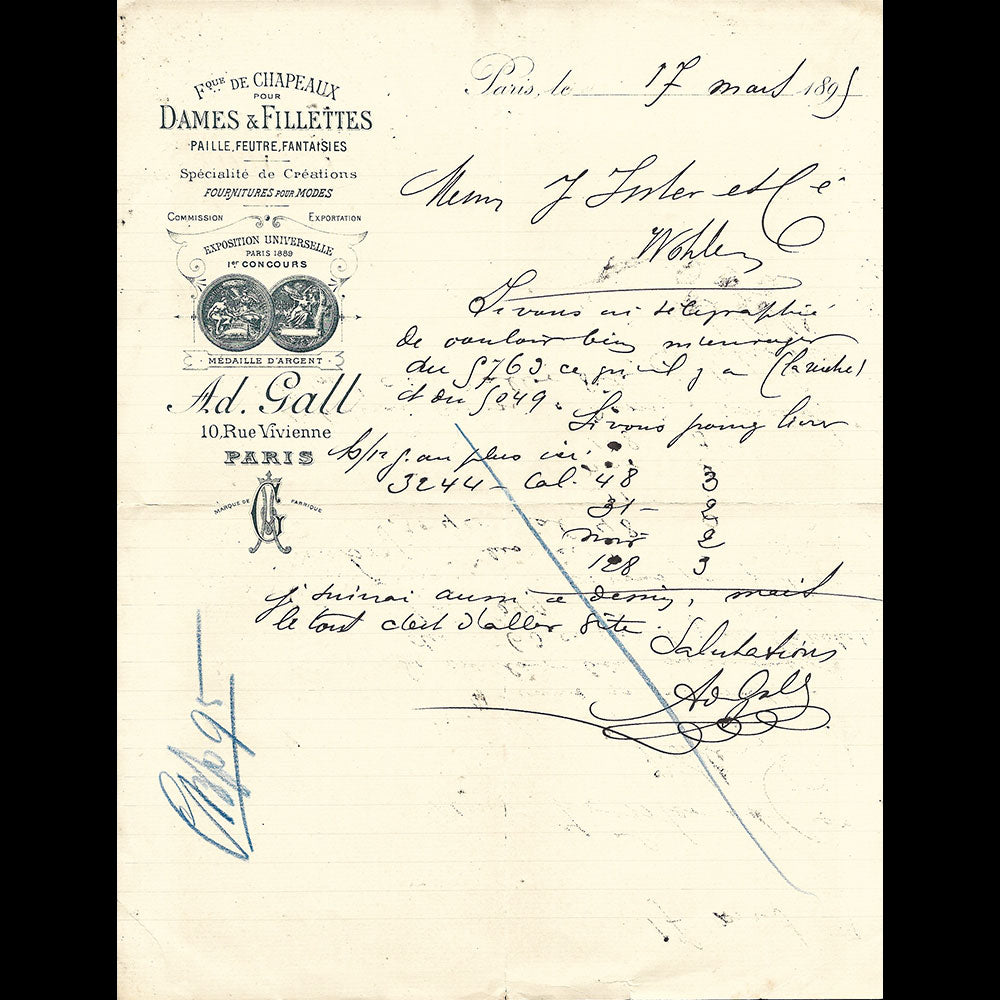 Fque DE CHAPEAUX
POUR
DAMES & FILLETTES
PAILLE, FEUTRE, FANTAISIES
Spécialité de Créations
FOURNITURES POUR MODES
COMMISSION EXPORTATION
EXPOSITION UNIVERSELLE
PARIS 1889
1er CONCOURS
MÉDAILLE D'ARGENT
Ad. Gall
10, Rue Vivienne
PARIS
MARQUE DE FABRIQUE
G
Paris, le 17 mars 1895
Messrs J Isler et Cie
Wohlen
Je vous ai télégraphié
de vouloir bien
du 5763 ce qu'il y a
et du 5049. Si vous pouvez livrer
au plus
3244 - Col. 48 3
31 - 2
noir 2
128 3
je suivrai aussi ce dessin, mais
le tout c'est d'aller vite.
Salutations
Ad Gall
95